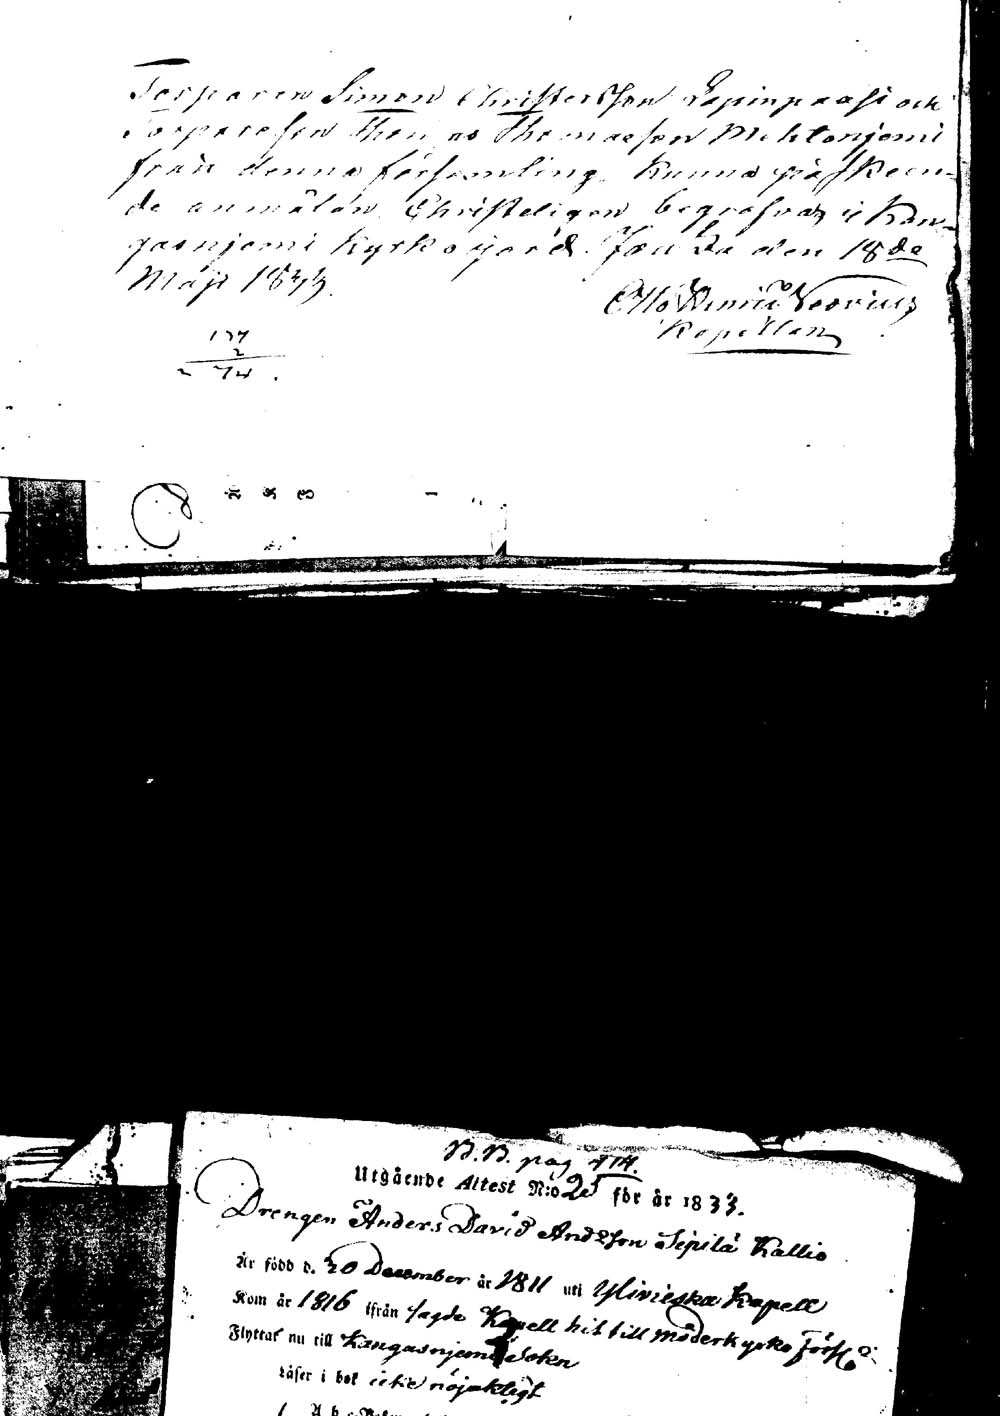 Torparen Simon Christersson Lapinpaasi och
Torparesen Thomas Thomasson Mehtonjemi
från denna församling kunna på skeen-
de anmälan Christeligen begrafvas i Kan-
gasnjemi kyrkojord. den 18de
Maji 1833.
Otto Neovius
Kapellan
137
2
274
N.N. pag 414.
Utgående Attest N:o 25 för år 1833.
Drengen Anders David Andersson Sipilä Kallio
Är född d. 20 December år 1811 uti Ylivieska Kapell
Kom år 1816 ifrån sagde Kapell hit till Moderkyrko Förs
Flyttat nu till Kangasnjemi Soken
Läser i bok icke nöjaktigt